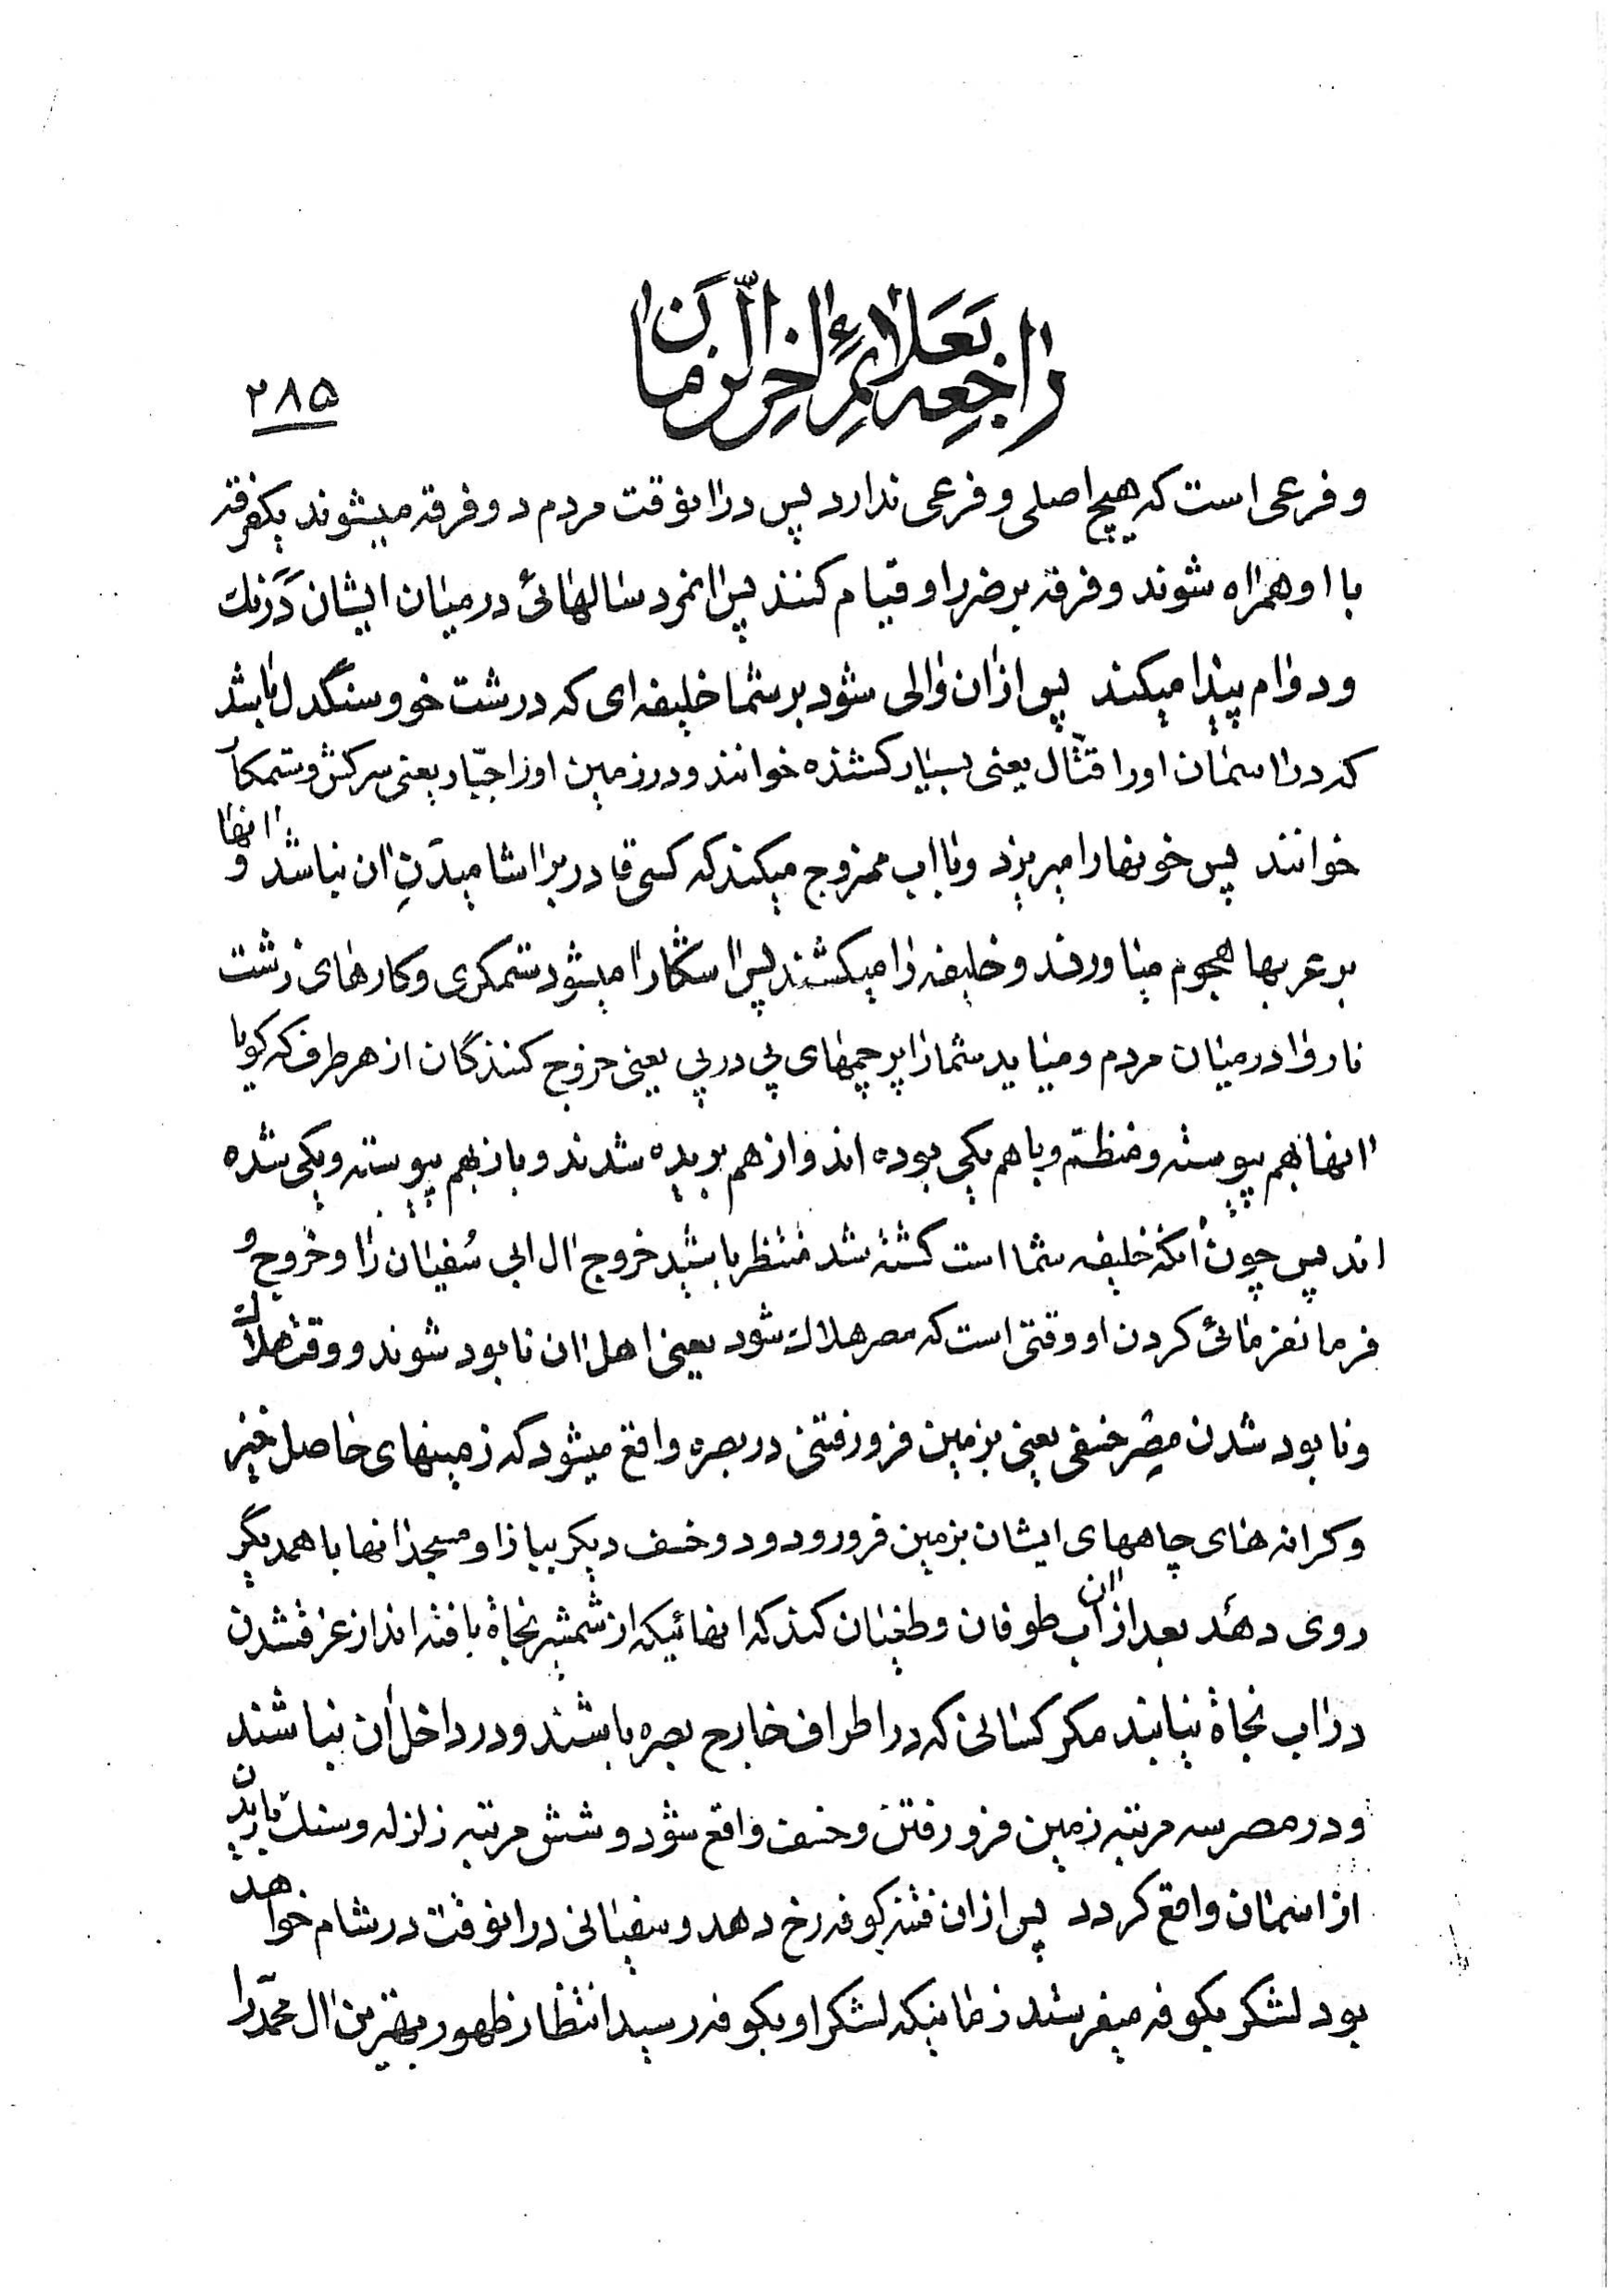 راجعه بعلائم اخر الزمان
۲۸۵
و فرعی است که هیچ اصلی و فرعی ندارد پس در انوقت مردم دو فرقه میشوند یکفرقه
با او همراه شوند و فرقه بر ضرر او قیام کنند پس انمرد سالهائی در میان ایشان درنك
و دوام پیدا میکند پس از ان والی شود بر شما خلیفه ای که درشت خو و سنگدل باشد
که در اسمان او را قتّال یعنی بسیار کشنده خوانند و در زمین او را جبّار یعنی سرکش و ستمکار
خوانند پس خونها را میریزد و با اب ممزوج میکند که کسی قادر بر اشامیدَنِ ان نباشد و انها
بر عربها هجوم میاورند و خلیفه را میکشند پس اشکارا میشود ستمکری و کارهای زشت
ناروا در میان مردم و میاید شما را پرچمهای پی در پی یعنی خروج کنندگان از هر طرف که کویا
انها بهم پیوسته و منظم و با هم یکی بوده اند و از هم بریده شدند و باز بهم پیوسته و یکی شده
اند پس چون انکه خلیفه شما است کشته شد منتظر باشید خروج ال ابی سُفیان را و خروج و
فرمانفرمائی کردن او وقتی است که مصر هلاك شود یعنی اهل ان نابود شوند و وقت هلاك
و نابود شدن مصر خسفی یعنی بزمین فرو رفتنی در بصره واقع میشود که زمینهای حاصل خیز
و کرانه های چاههای ایشان بزمین فرو رود و دو خسف دیکر ببازار و مسجد انها با همدیگر
روی دهد بعد از ان اب طوفان و طغیان کند که انهائیکه از شمشیر نجاة یافته اند از غرقشدن
در اب نجاة نیابند مکر کسانی که در اطراف خارج بصره باشند و در داخل ان نباشند
و در مصر سه مرتبه زمین فرو رفتن و خسف واقع شود و شش مرتبه زلزله و سنك باریدن
از اسمان واقع کردد پس از ان فتنه کوفه رخ دهد و سفیانی در انوقت در شام خواهد
بود لشکر بکوفه میفرستد زمانیکه لشکر او بکوفه رسید انتظار ظهور بهترین ال محمّد را